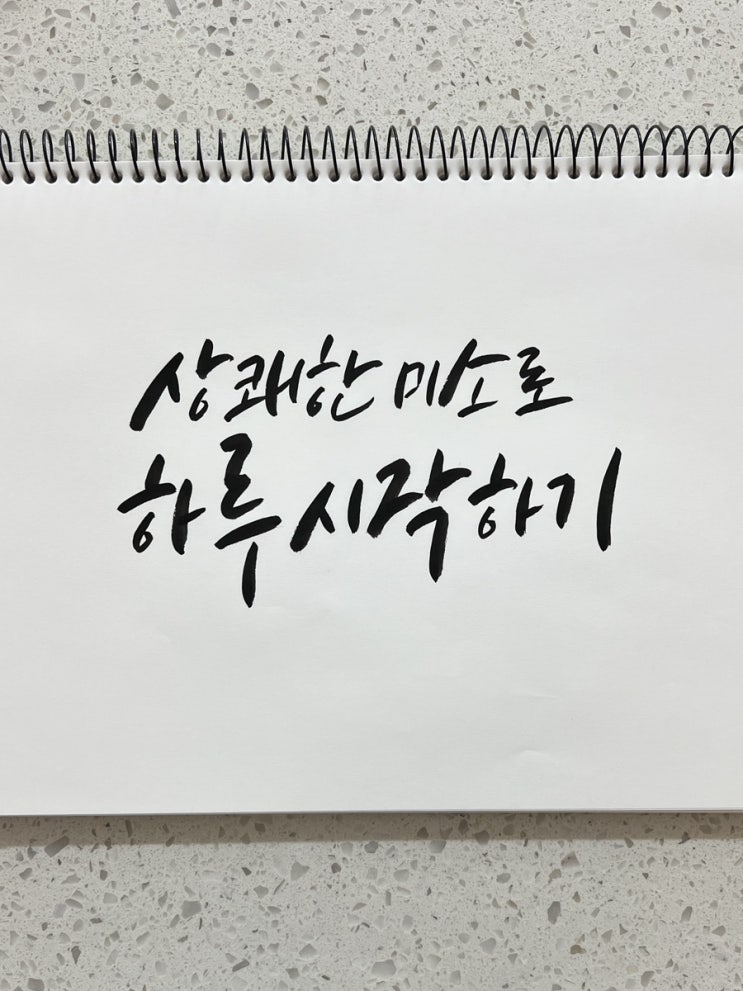 상쾌한 미소로
하루 시작하기